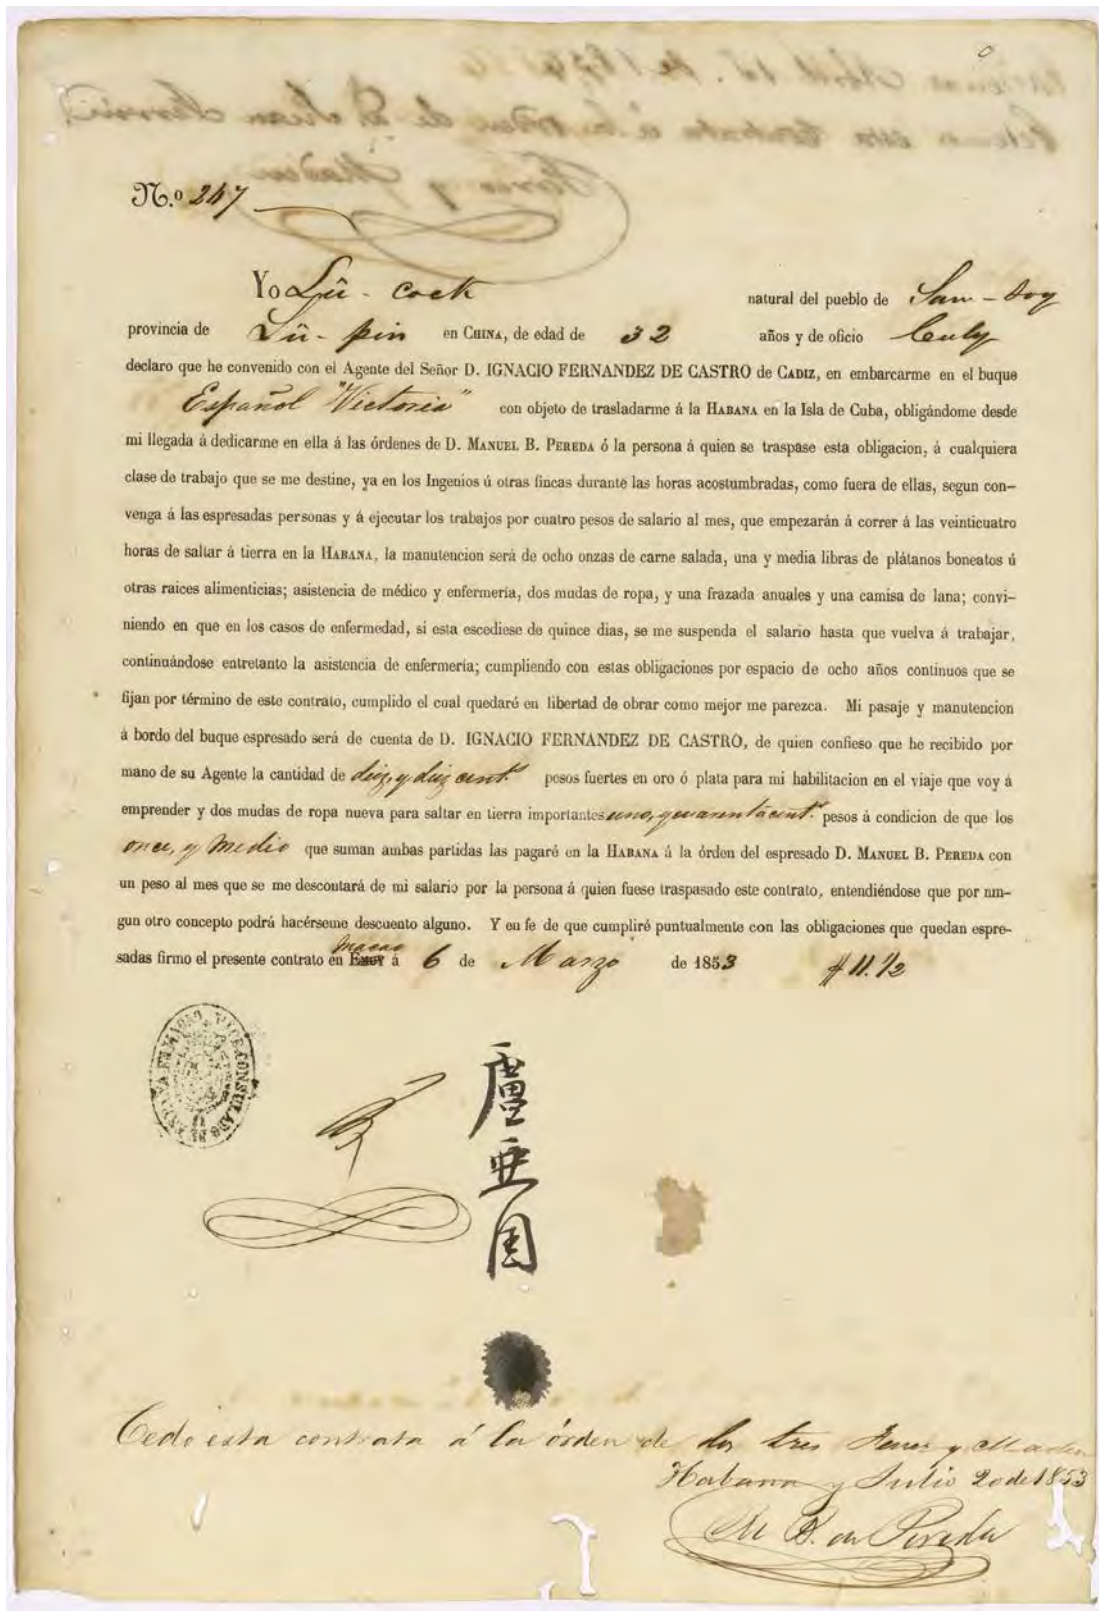 N.º 247
Yo Lû - cock natural del pueblo de San - hoy
provincia de Lû - pin en CHINA, de edad de 32 años y de oficio Culy
declaro que he convenido con el Agente del Señor D. IGNACIO FERNANDEZ DE CASTRO de CADIZ, en embarcarme en el buque
Español "Victoria" con objeto de trasladarme á la HABANA en la Isla de Cuba, obligándome desde
mi llegada á dedicarme en ella á las órdenes de D. MANUEL B. PEREDA ó la persona á quien se traspase esta obligacion, á cualquiera
clase de trabajo que se me destine, ya en los Ingenios ú otras fincas durante las horas acostumbradas, como fuera de ellas, segun con-
venga á las espresadas personas y á ejecutar los trabajos por cuatro pesos de salario al mes, que empezarán á correr á las veinticuatro
horas de saltar á tierra en la HABANA, la manutencion será de ocho onzas de carne salada, una y media libras de plátanos boneatos ú
otras raices alimenticias; asistencia de médico y enfermería, dos mudas de ropa, y una frazada anuales y una camisa de lana; convi-
niendo en que en los casos de enfermedad, si esta escediese de quince dias, se me suspenda el salario hasta que vuelva á trabajar,
continuándose entretanto la asistencia de enfermería; cumpliendo con estas obligaciones por espacio de ocho años continuos que se
fijan por término de este contrato, cumplido el cual quedaré en libertad de obrar como mejor me parezca. Mi pasaje y manutencion
á bordo del buque espresado será de cuenta de D. IGNACIO FERNANDEZ DE CASTRO, de quien confieso que he recibido por
mano de su Agente la cantidad de diez, y diez cent.s pesos fuertes en oro ó plata para mi habilitacion en el viaje que voy á
emprender y dos mudas de ropa nueva para saltar en tierra importantes uno, y cuarenta cent.s pesos á condicion de que los
once, y medio que suman ambas partidas las pagaré en la HABANA á la órden del espresado D. MANUEL B. PEREDA con
un peso al mes que se me descontará de mi salario por la persona á quien fuese traspasado este contrato, entendiéndose que por nin-
gun otro concepto podrá hacérseme descuento alguno. Y en fe de que cumpliré puntualmente con las obligaciones que quedan espre-
sadas firmo el presente contrato en EMUY Macao á 6 de Marzo de 1853 $ 11. 1/2
VICE-CONSULADO
盧亞國
Cedo esta contrata á la órden de los tres y
Habana y Julio 20 de 1853
M B. de Pereda